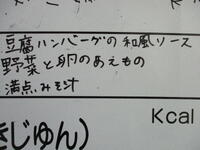 豆腐ハンバーグの和風ソース
野菜と卵のあえもの
満点みそ汁
Kcal
きじゅん)